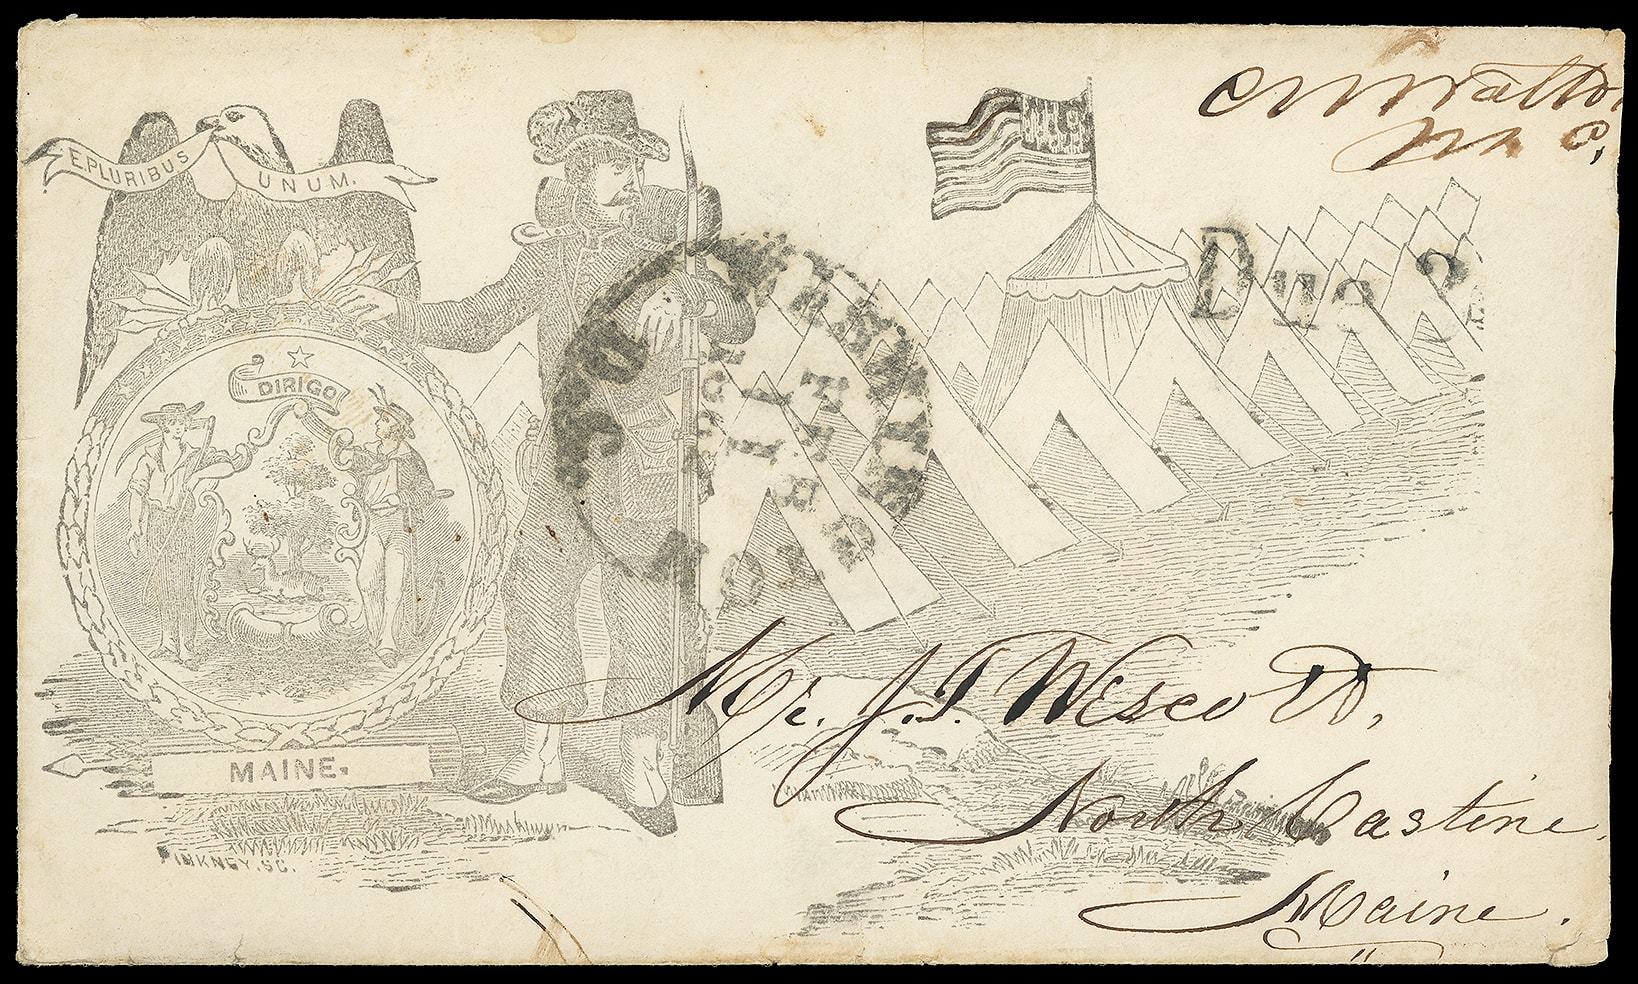 E PLURIBUS UNUM.
DIRIGO
MAINE.
PINKNEY. SC.
M. C.
Due 3
OLD
NOV
Mr. J. T. Wescott,
North Castine,
Maine.